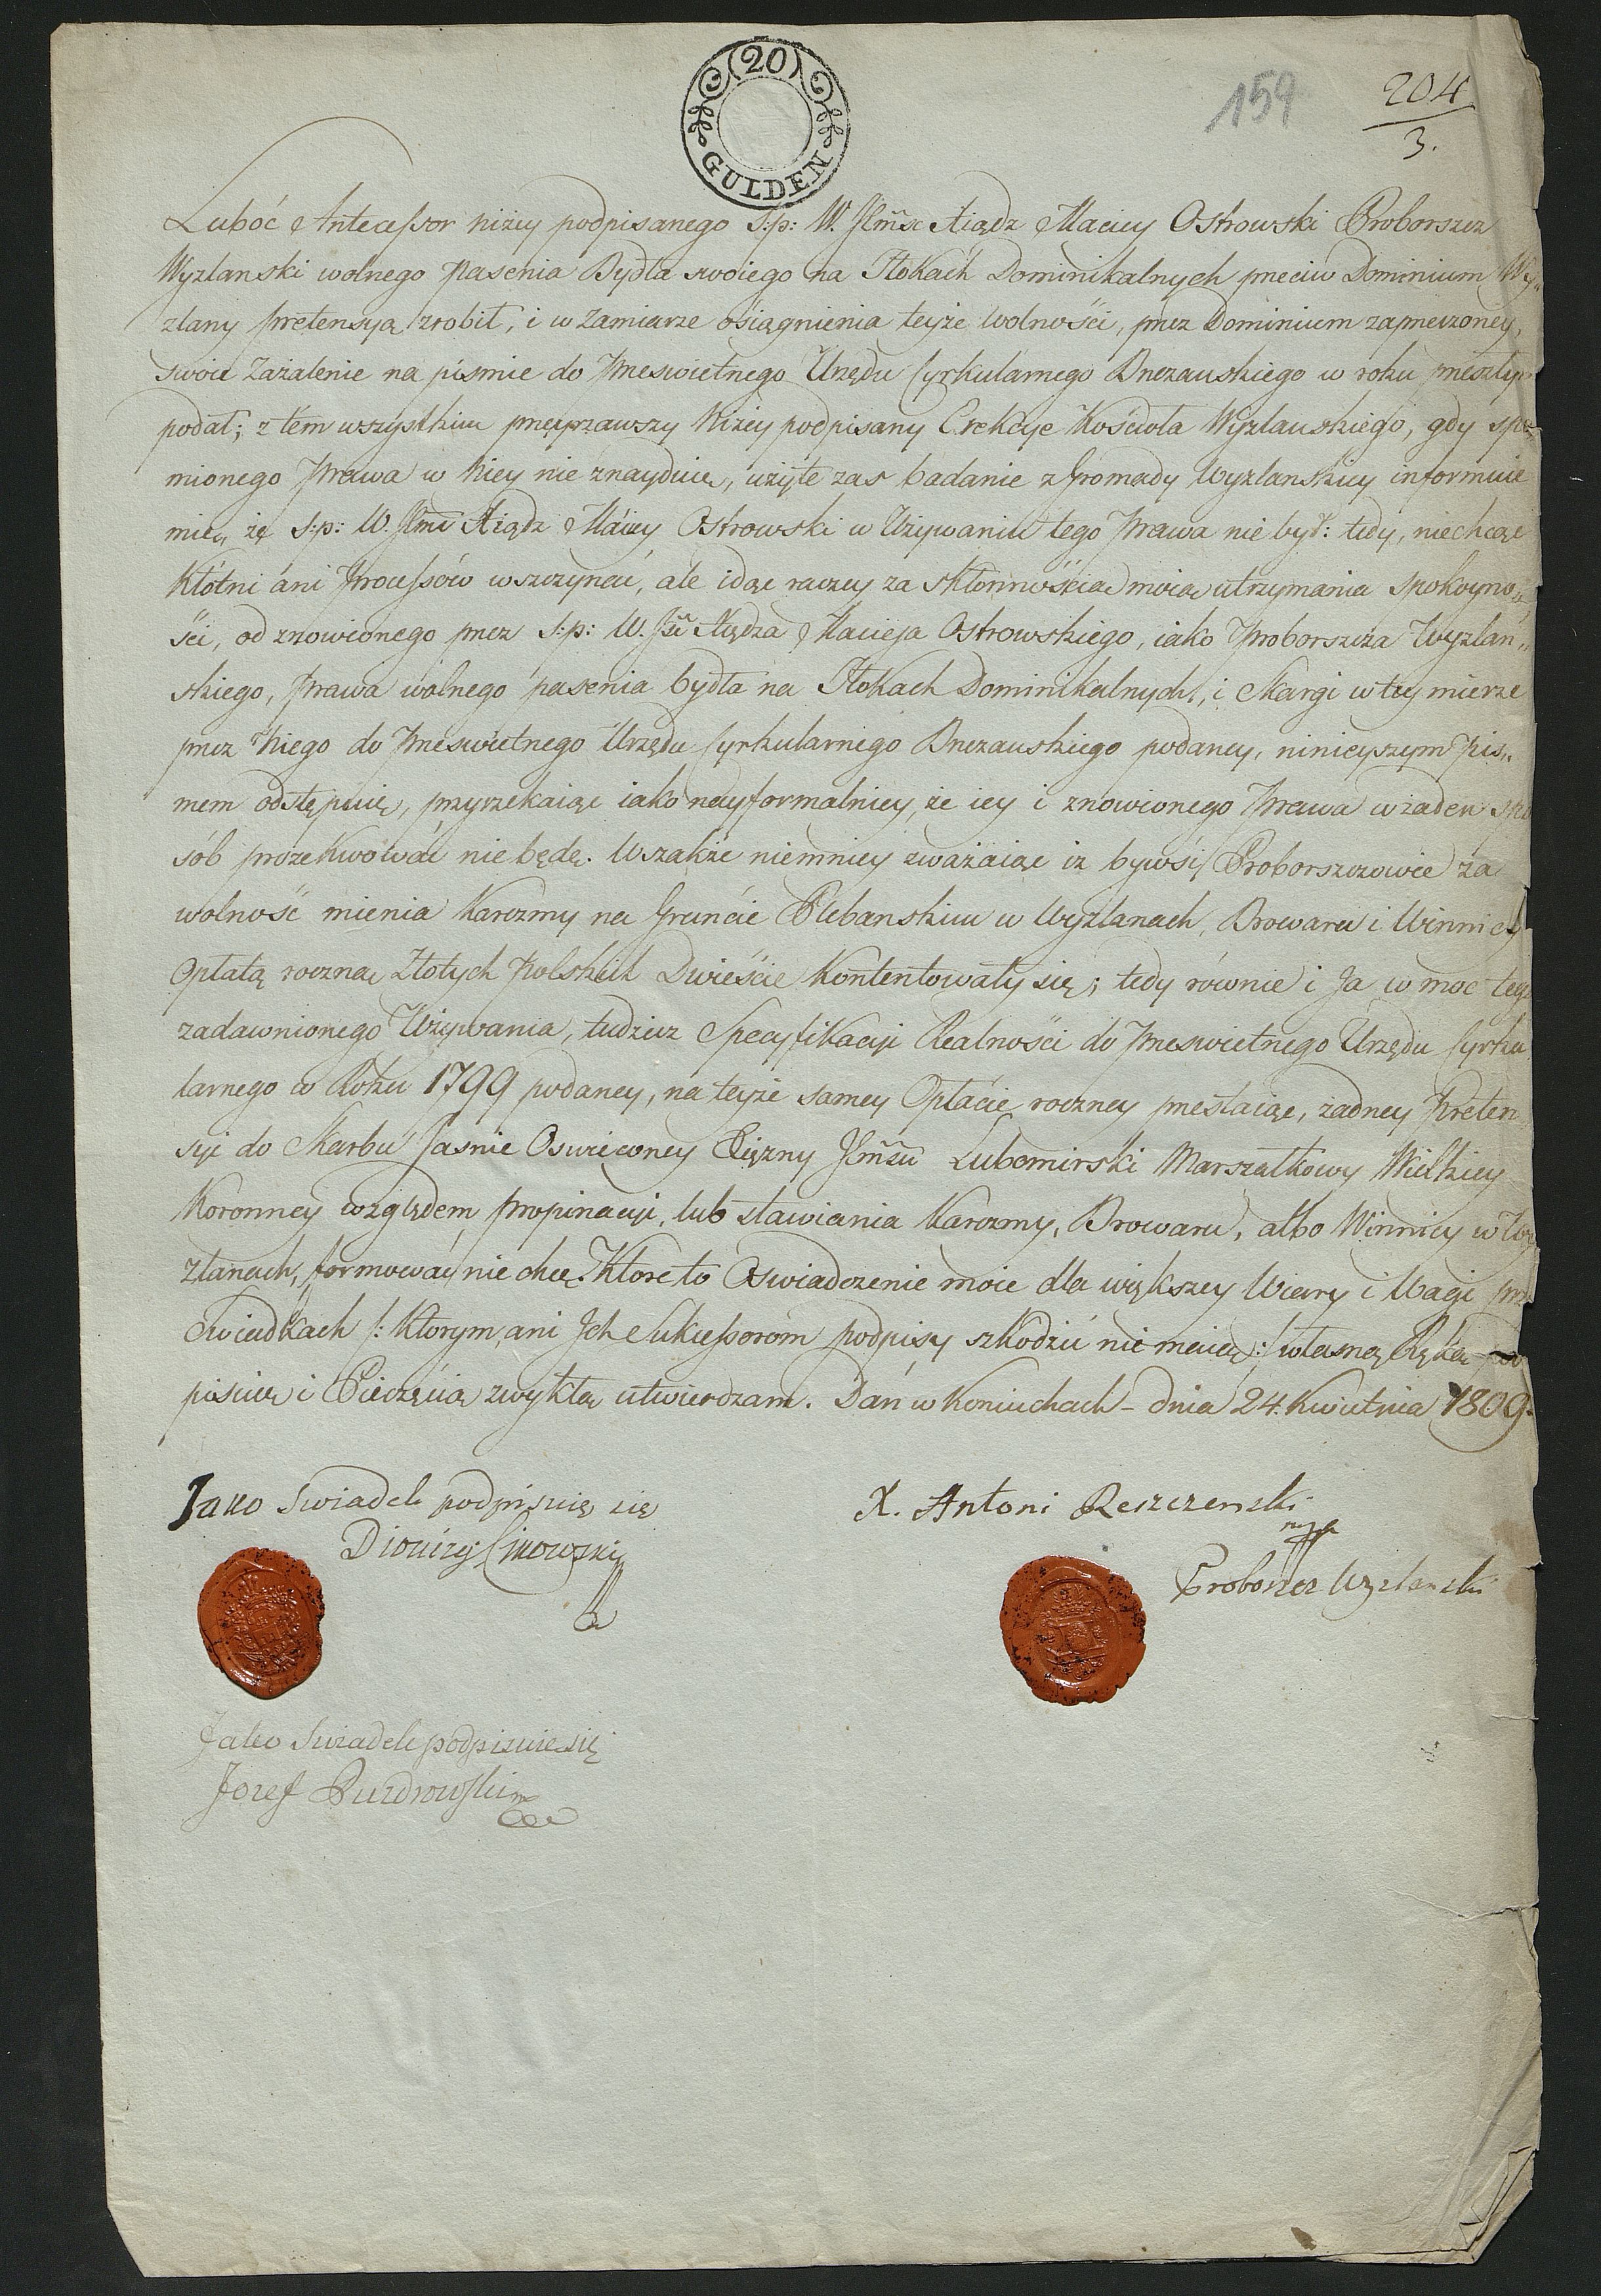 20
GULDEN
159
204
3.
Luboć Antecessor niżey podpisanego s:p: W. Jmść Xiądz Maciey Ostrowski Proborszcz
Wyżlanski wolnego Pasenia Bydła swoiego na Tłokach Dominikalnych przeciw Dominium Wy„
żlany pretensyą zrobił, i w zamiarze osiągnienia teyże wolności, przez Dominium zaprzeczoney,
swoie Zażalenie na piśmie do Przeswietnego Urzędu Cyrkularnego Brzeżanskiego w roku przeszłym
podał; z tem wszystkiem przeyrzawszy Niżey podpisany Erekcye Kościoła Wyżlanskiego, gdy
mionego Prawa w Niey nie znayduie, użyte zas badanie z Gromady Wyżlanskiey informuie
mię, że s:p: W. Jmć Xiądz Maciey Ostrowski w Używaniu tego Prawa nie był: tedy, niechcąc
Kłótni ani Processów wszczynać, ale idąc raczey za skłonnością moią utrzymania spokoyno„
ści, od znowionego przez s:p: W. Jść Xiędza Macieja Ostrowskiego, iako Proborszcza Wyżlań„
skiego, Prawa wolnego pasenia bydła na Tłokach Dominikalnych, i Skargi w tey mierze
przez Niego do Przeswietnego Urzędu Cyrkularnego Brzeżanskiego podaney, ninieyszym Pis„
mem odstępuię, przyrzekaiąc iako nayformalniey, że iey i znowionego Prawa w żaden spo
sób prozekwować nie będę. Wszakże niemniey zważaiąc iż bywsi Proborszczowie za
wolność mienia Karczmy na Gruncie Plebanskim w Wyżlanach, Browaru i Winnicy
Opłatą roczną Złotych Polskich Dwieście Kontentowały się; tedy równie i Ja w moc tego
zadawnionego Używania, tudzież Specyfikacyi Realności do Przeswietnego Urzędu Cyrku
larnego w Roku 1799 podaney, na teyże samey Opłacie roczney przestaiąc, żadney Preten
syi do Skarbu Jaśnie Oswieconey Xiężny Jmści Lubomirski Marszałkowy Wielkiey
Koronney względem propinacyi, lub stawiania Karczmy, Browaru, albo Winnicy w Wy
żlanach, formować nie chcę. Ktore to Oswiadczenie moie dla większey Wiary i Wagi przy
Swiadkach /: Ktorym, ani Ich Sukcessorom podpisy szkodzić nie maią :/ własną Ręką pod
pisuię i Pieczęcią zwykłą utwierdzam. Dań w Koniuchach – dnia 24. Kwietnia 1809.
Jako Swiadek podpisuię się
X. Antoni Reszczenski
mpp
Dionizy
Proboszcz Wyżlanski
Jako Swiadek podpisuie się
Jozef